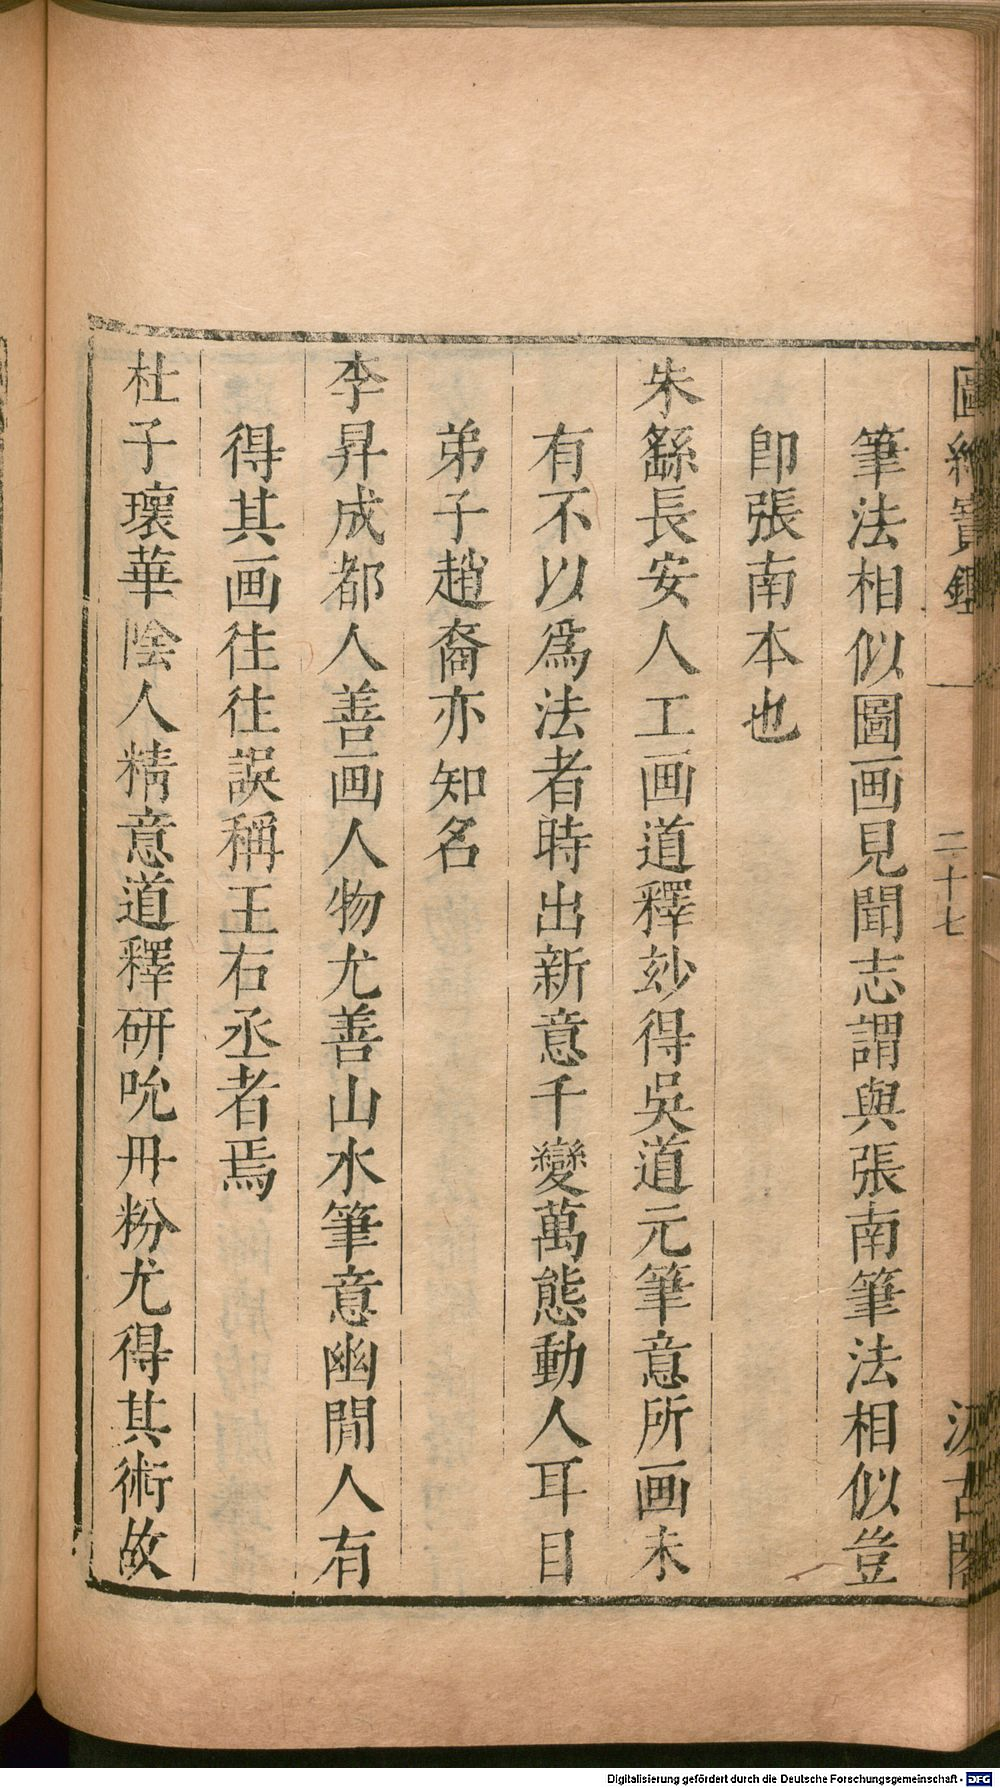 圖繪寶鑑 二十七 汲古閣
筆法相似圖画見聞志謂與張南筆法相似豈
卽張南本也
朱繇長安人工画道釋玅得吳道元筆意所画未
有不以爲法者時出新意千變萬態動人耳目
弟子趙裔亦知名
李昇成都人善画人物尤善山水筆意幽閒人有
得其画往往誤稱王右丞者焉
杜子瓌華陰人精意道釋研吮丹粉尤得其術故
Digitalisierung gefördert durch die Deutsche Forschungsgemeinschaft - DFG